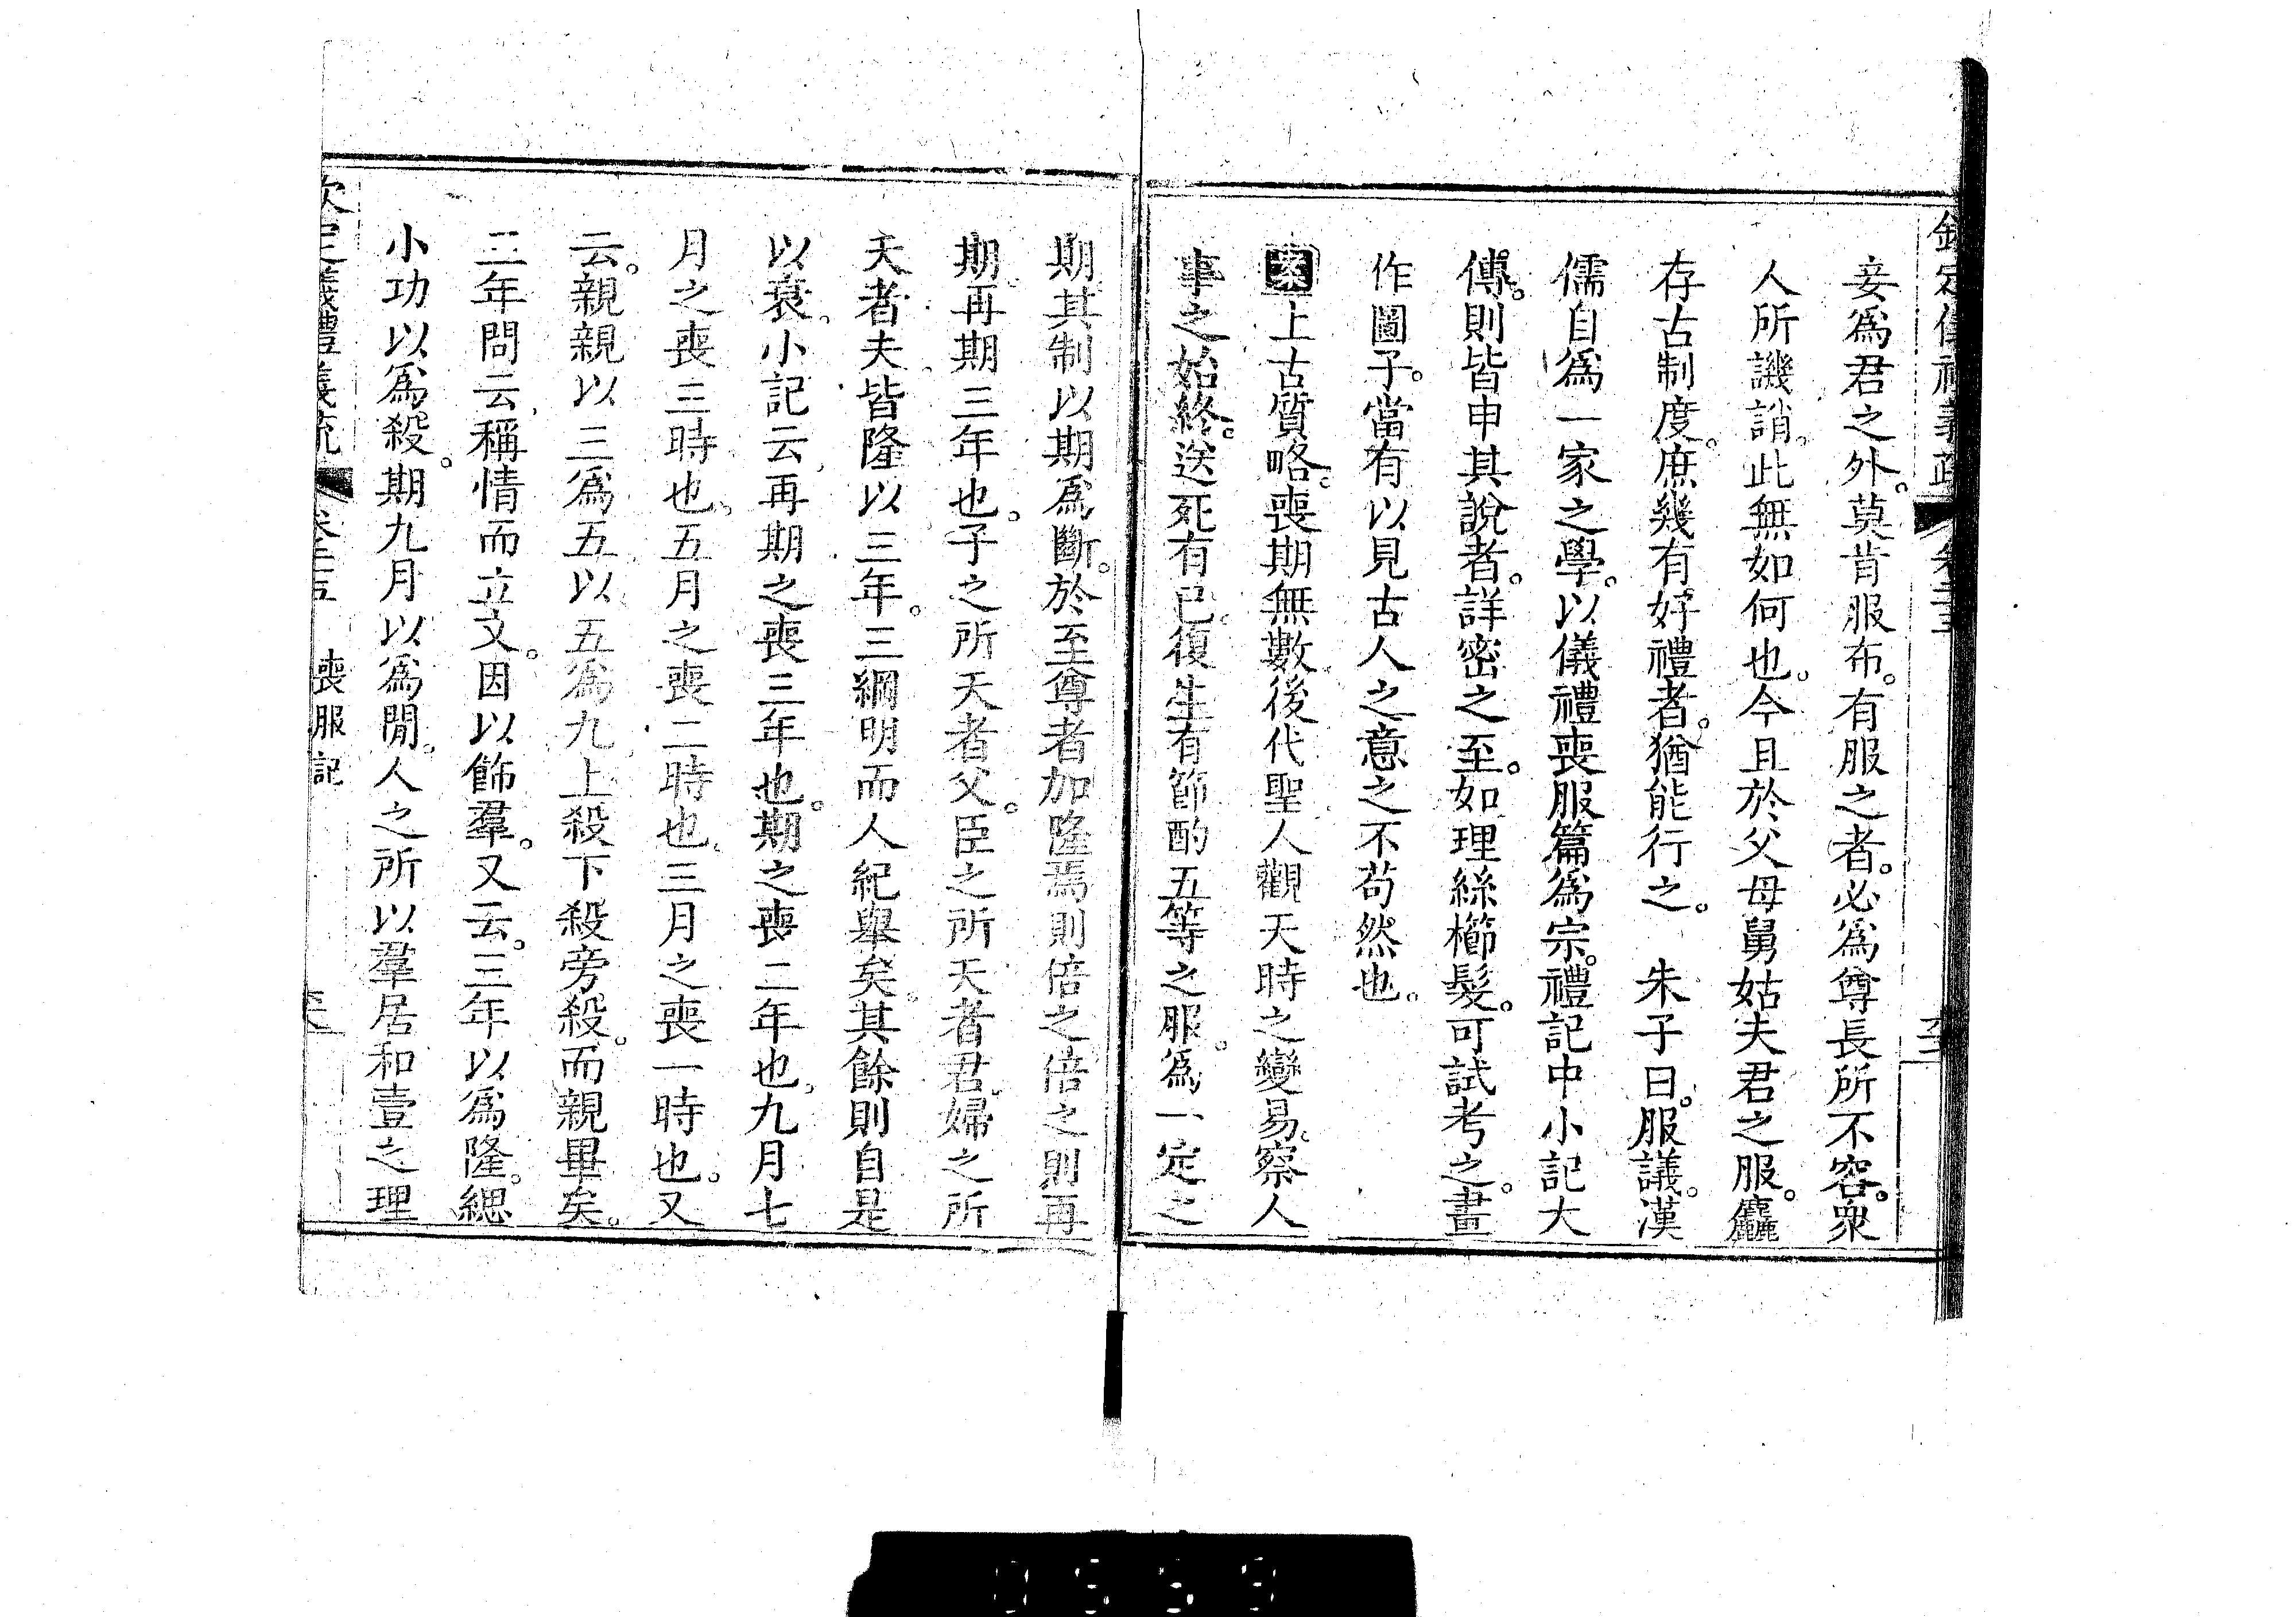 欽定儀禮義疏 卷二十五
妾爲君之外。莫肯服布。有服之者。必爲尊長所不容。衆
人所譏誚。此無如何也。今且於父母舅姑夫君之服。麤
存古制度。庶幾有好禮者。猶能行之。 朱子曰。服議。漢
儒自爲一家之學。以儀禮喪服篇爲宗。禮記中小記大
傳。則皆申其說者。詳密之至。如理絲櫛髮。可試考之。畫
作圖子。當有以見古人之意之不苟然也。
案上古質略。喪期無數。後代聖人觀天時之變易。察人
事之始終。送死有已。復生有節。酌五等之服。爲一定之
期。其制以期爲斷。於至尊者加隆焉。則倍之。倍之則再
期。再期三年也。子之所天者父。臣之所天者君。婦之所
天者夫。皆隆以三年。三綱明而人紀舉矣。其餘則自是
以衰。小記云。再期之喪三年也。期之喪二年也。九月七
月之喪三時也。五月之喪二時也。三月之喪一時也。又
云。親親以三爲五。以五爲九。上殺下殺旁殺。而親畢矣。
三年問云。稱情而立文。因以飾羣。又云。三年以爲隆。緦
小功以爲殺。期九月以爲閒。人之所以羣居和壹之理
欽定儀禮義疏 卷二十五 喪服記